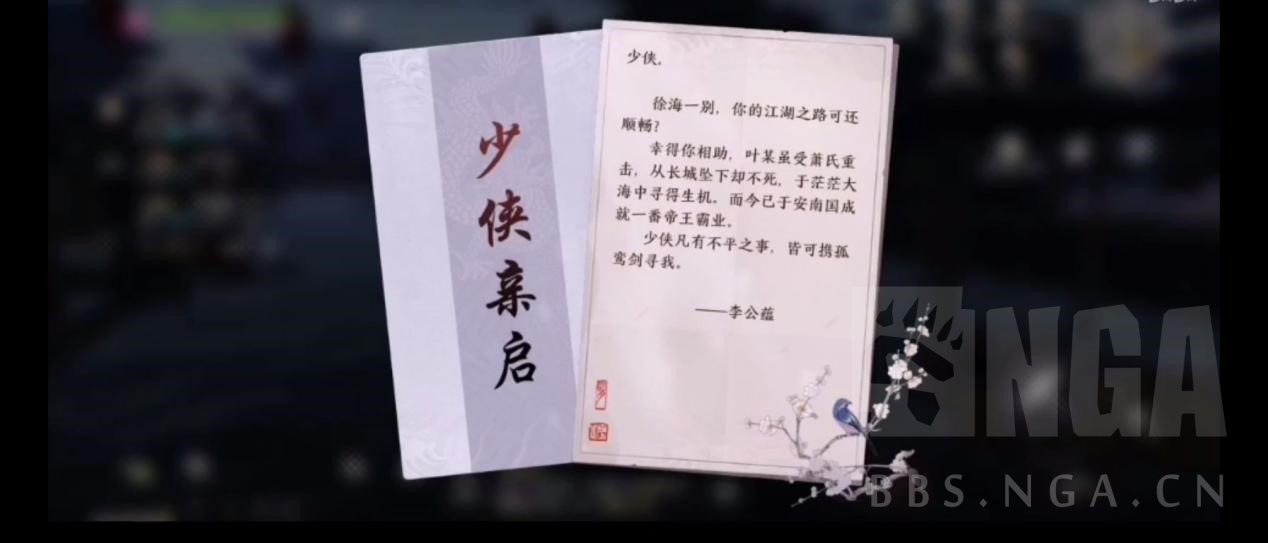 少侠亲启
少侠，
徐海一别，你的江湖之路可还
顺畅？
幸得你相助，叶某虽受萧氏重
击，从长城坠下却不死，于茫茫大
海中寻得生机。而今已于安南国成
就一番帝王霸业。
少侠凡有不平之事，皆可携孤
鸾剑寻我。
——李公蕴
NGA
BBS.NGA.CN